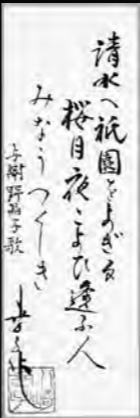 清水へ祇園をよぎる
桜月夜こよひ逢ふ人
みなうつくしき
与謝野晶子歌